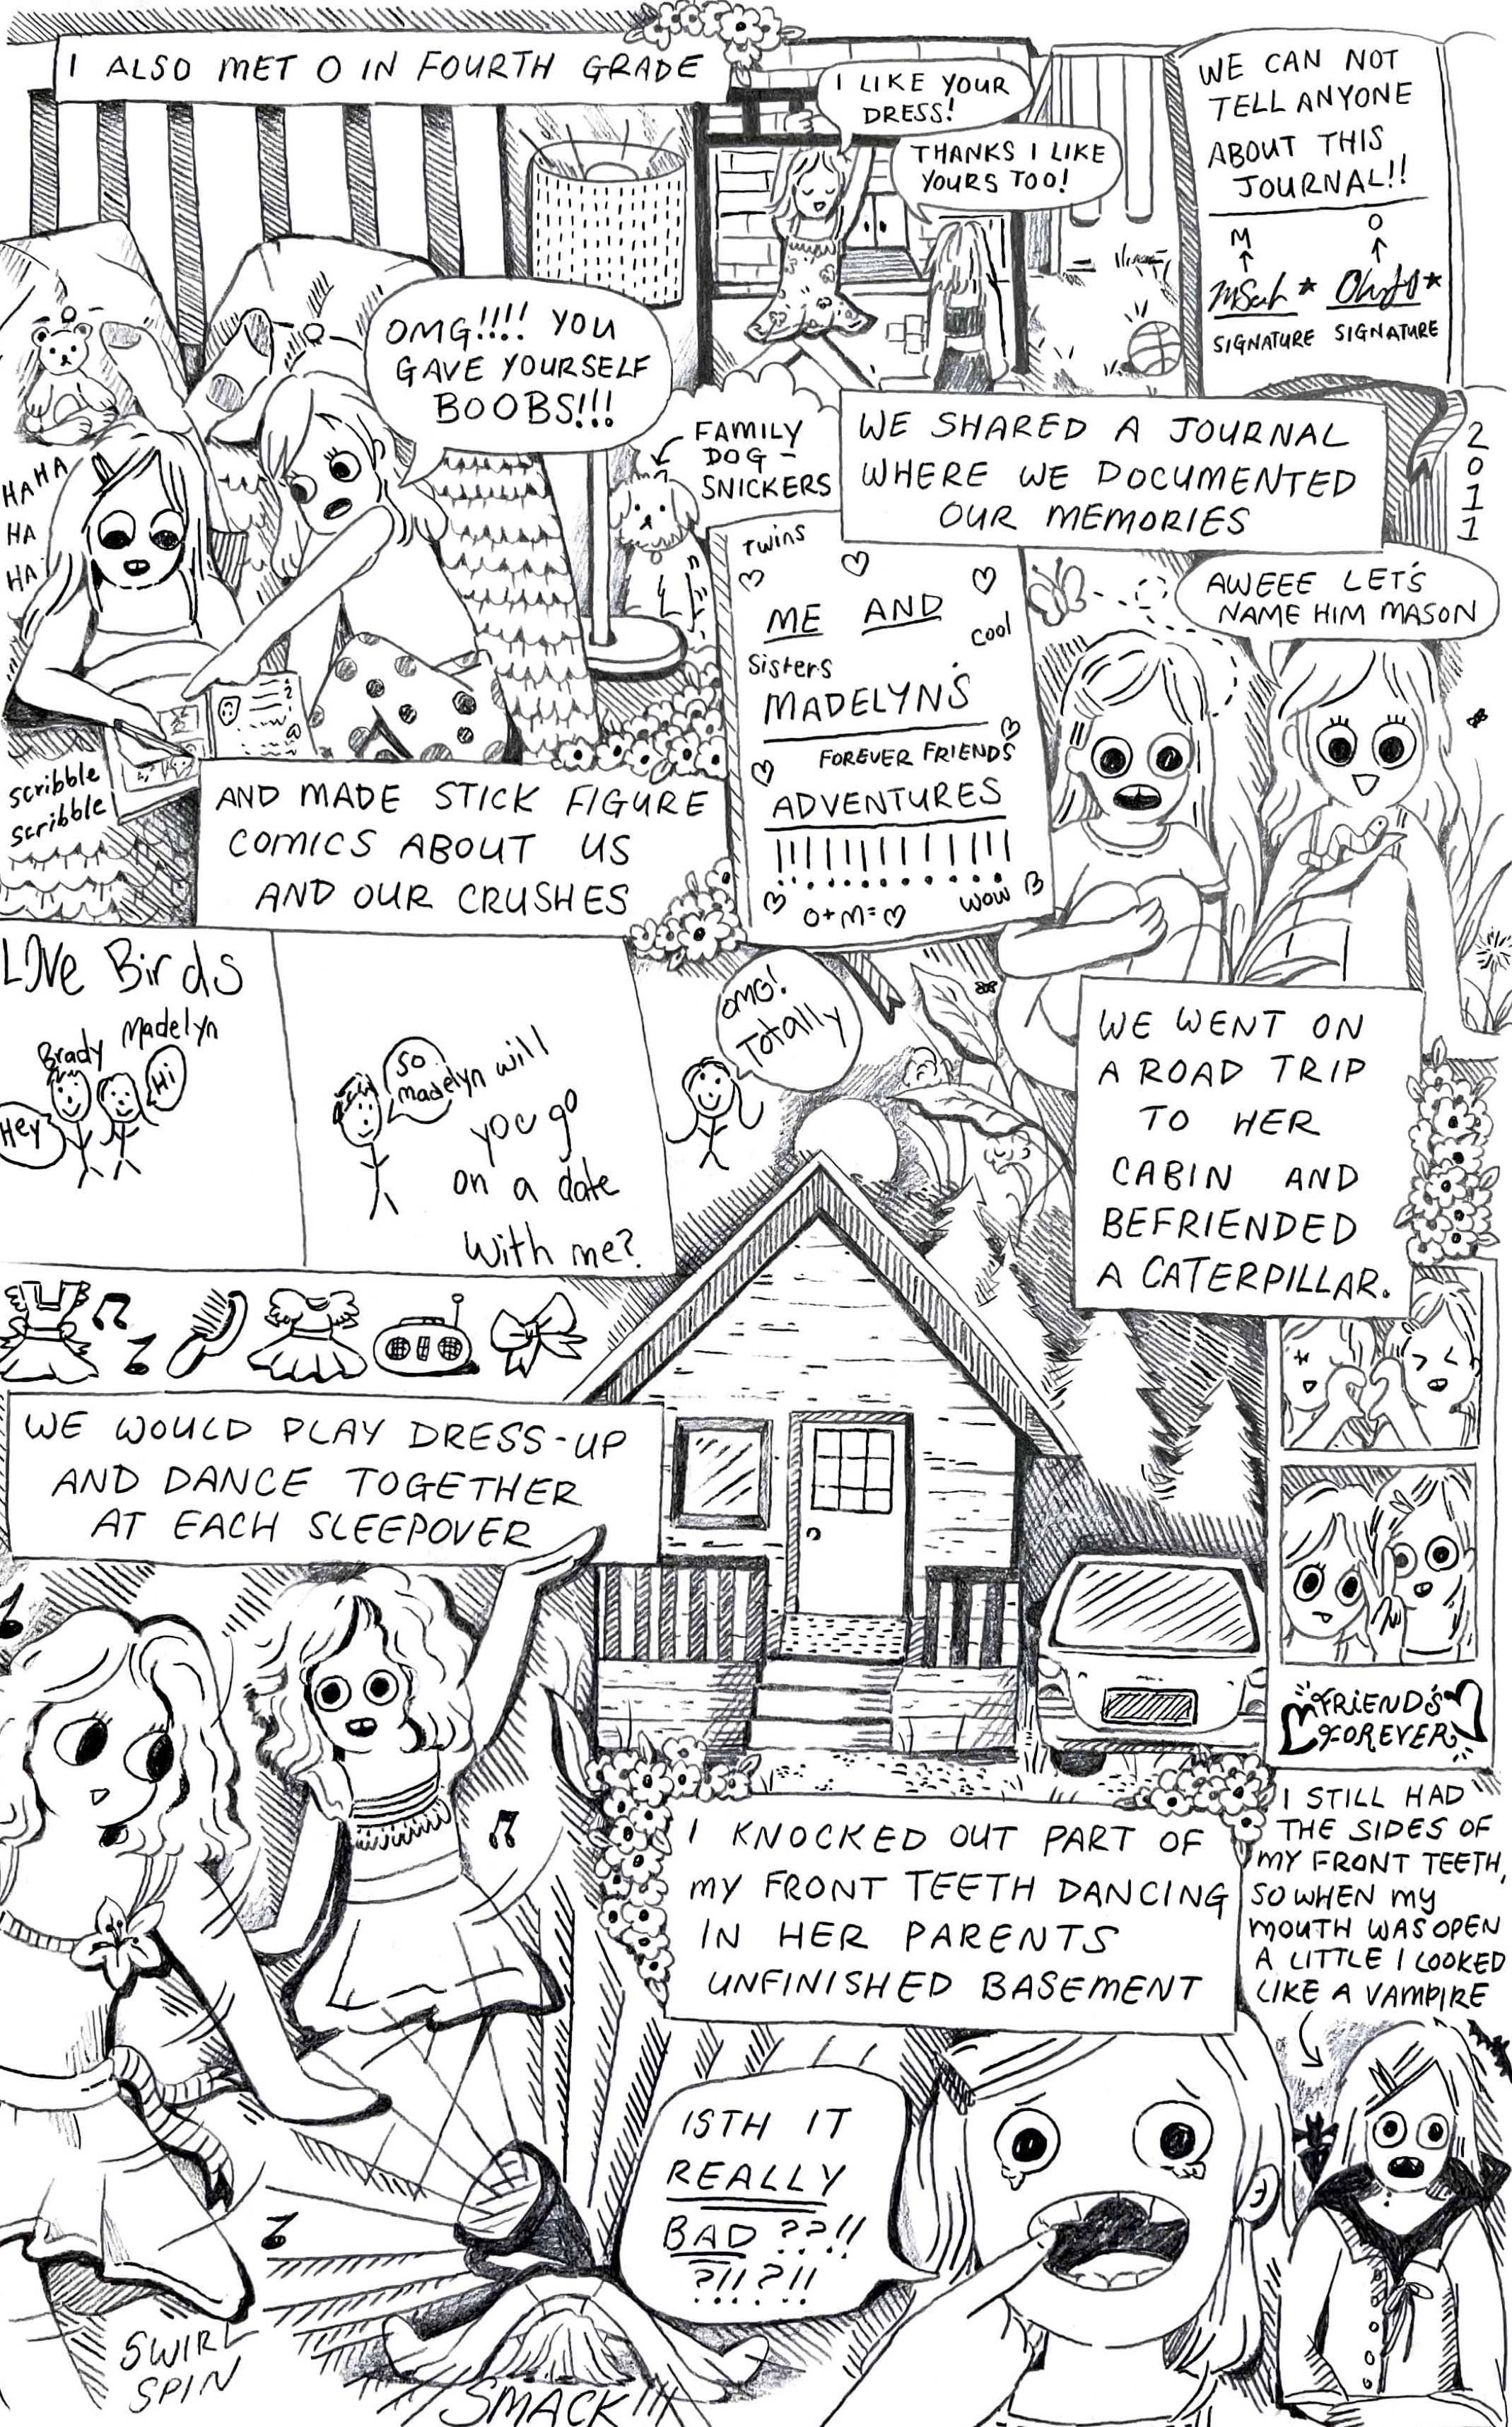 I ALSO MET O IN FOURTH GRADE
I LIKE YOUR
DRESS!
THANKS I LIKE
YOURS TOO!
WE CAN NOT
TELL ANYONE
ABOUT THIS
JOURNAL!!
M
O
SIGNATURE
SIGNATURE
OMG!!!! YOU
GAVE YOURSELF
BOOBS!!!
HAHA
HA
HA
FAMILY
DOG -
SNICKERS
WE SHARED A JOURNAL
WHERE WE DOCUMENTED
OUR MEMORIES
2011
Twins
ME AND
COOL
Sisters
MADELYN'S
FOREVER FRIENDS
ADVENTURES
!!!!!!!!!!!!
O+M=♡
WOW
AWEEE LET'S
NAME HIM MASON
scribble
scribble
AND MADE STICK FIGURE
COMICS ABOUT US
AND OUR CRUSHES
LOVe Birds
Brady
Madelyn
Hey
Hi
So
madelyn will
you go
on a date
with me?
OMG!
Totally
WE WENT ON
A ROAD TRIP
TO HER
CABIN AND
BEFRIENDED
A CATERPILLAR.
WE WOULD PLAY DRESS-UP
AND DANCE TOGETHER
AT EACH SLEEPOVER
FRiEND'S
FOREVER
I KNOCKED OUT PART OF
MY FRONT TEETH DANCING
IN HER PARENTS
UNFINISHED BASEMENT
I STILL HAD
THE SIDES OF
MY FRONT TEETH,
SO WHEN MY
MOUTH WAS OPEN
A LITTLE I LOOKED
LIKE A VAMPIRE
ISTH IT
REALLY
BAD ??!!
?!!?!!
SWIRL
SPIN
SMACK!!!